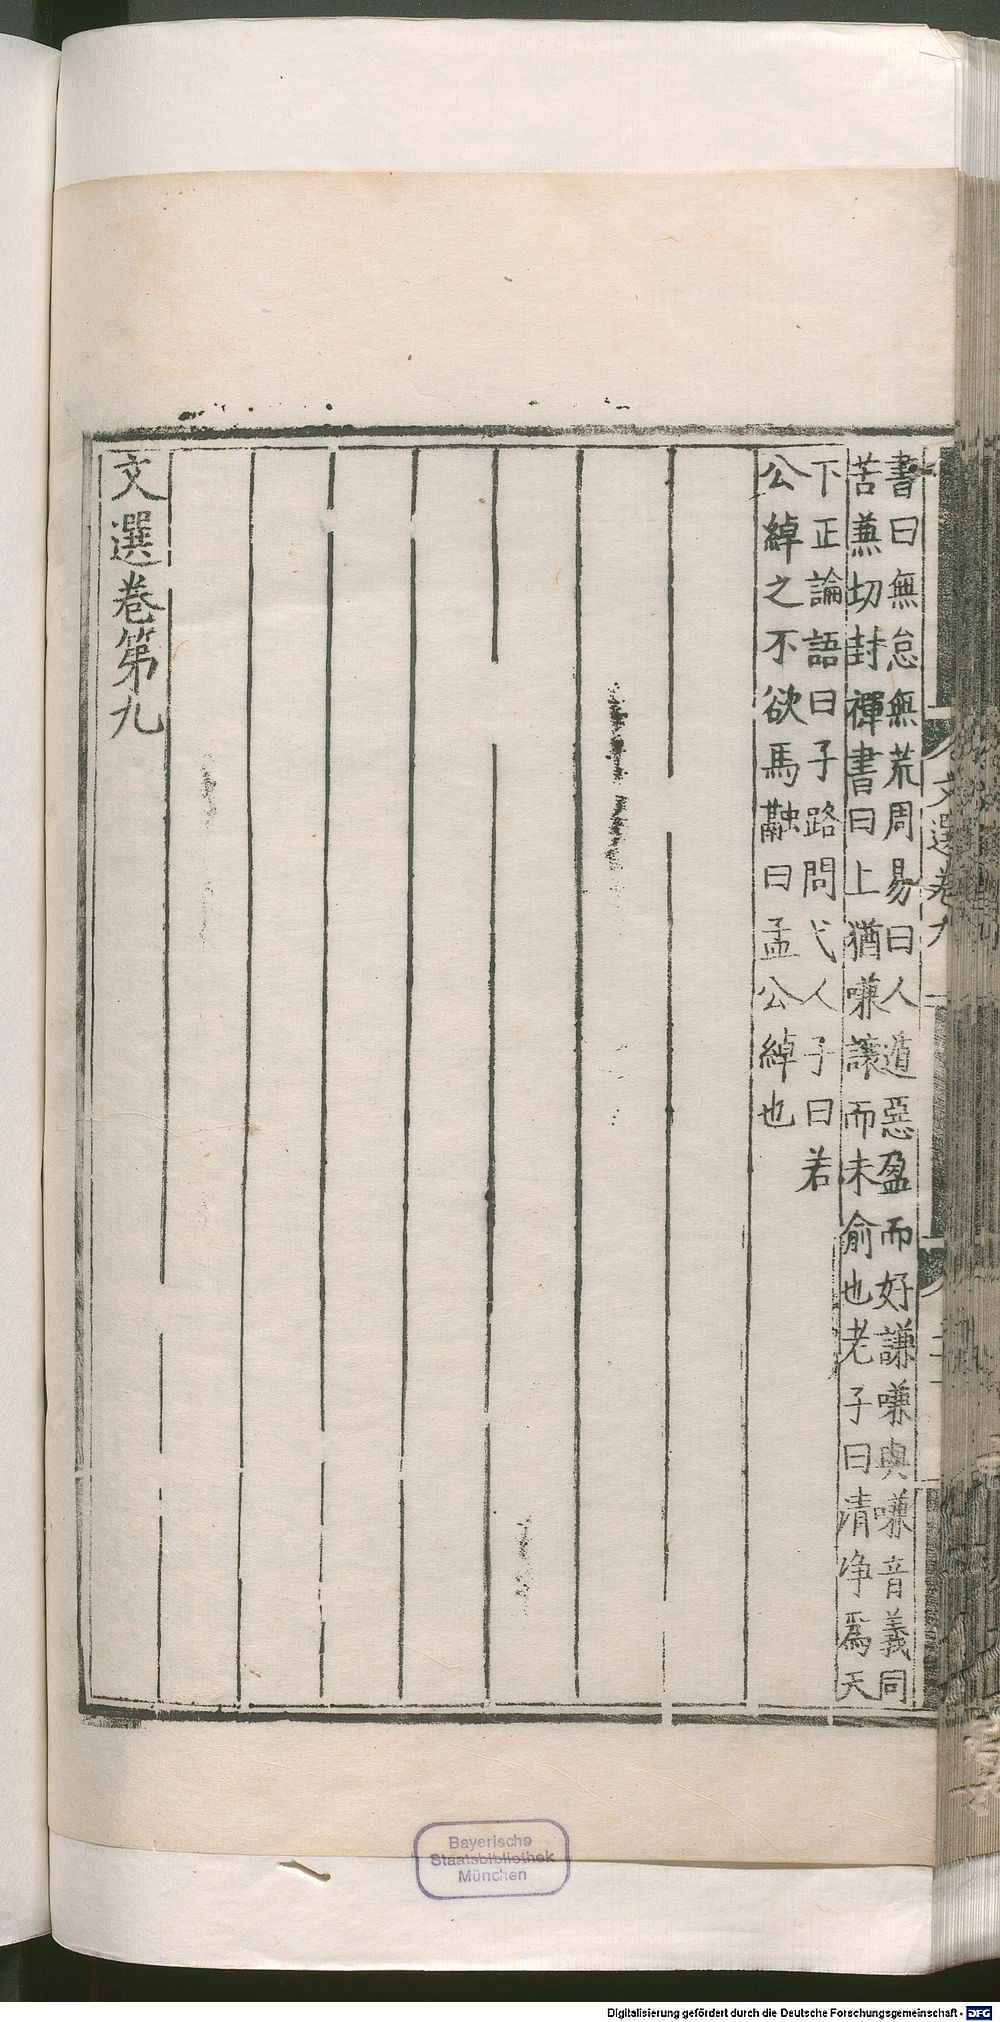 書曰無怠無荒周易曰人道惡盈而好謙嗛與嗛音義同
苦蒹切封禪書曰上猶嗛讓而未俞也老子曰清净爲天
下正論語曰子路問弋人子曰若
公綽之不欲馬融曰孟公綽也
文選卷第九
文選卷九
Bayerische
Staatsbibliothek
München
Digitalisierung gefördert durch die Deutsche Forschungsgemeinschaft - DFG